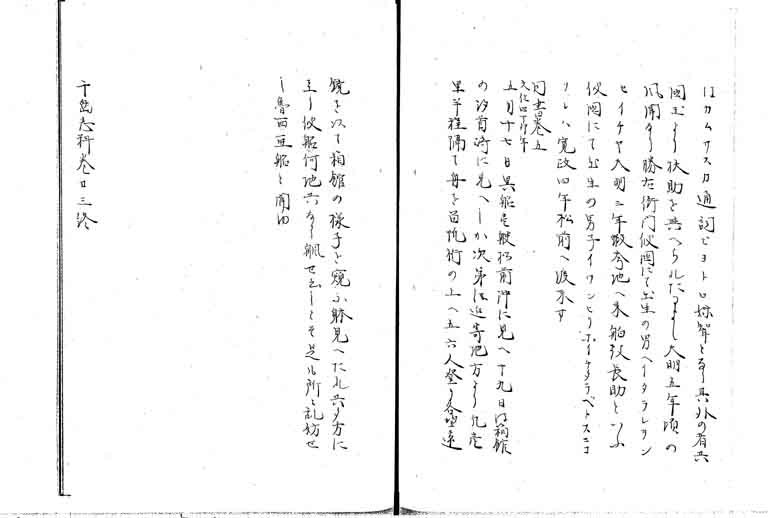 はカムサスカ通詞ビヨトロ妹聟となり其外の者共
国王より扶助を与へられたるよし天明五年頃の
風聞なり勝左衛門彼国にて出生の男ヘイタラレラン
セイチヤ天明二年蝦夷地へ来船 長助といふ
彼国にて出生の男子イワン
なり寛政四年松前へ渡来す
同書巻五
文化四丁卯年
五月十七日異船壱艘松前沖に見へ十九日は箱館
の汐首崎に見へしか次第に近寄地方より凡壱
里半程隔て舟を留帆術の上へ五六人登り各望遠
鏡を以て箱館の様子を窺ふ躰見へたれ共夕方に
至り彼船何地共なく帆せ出しとそ是ル所々乱妨せ
し魯西亜船と聞ゆ
千島志料巻廿三終